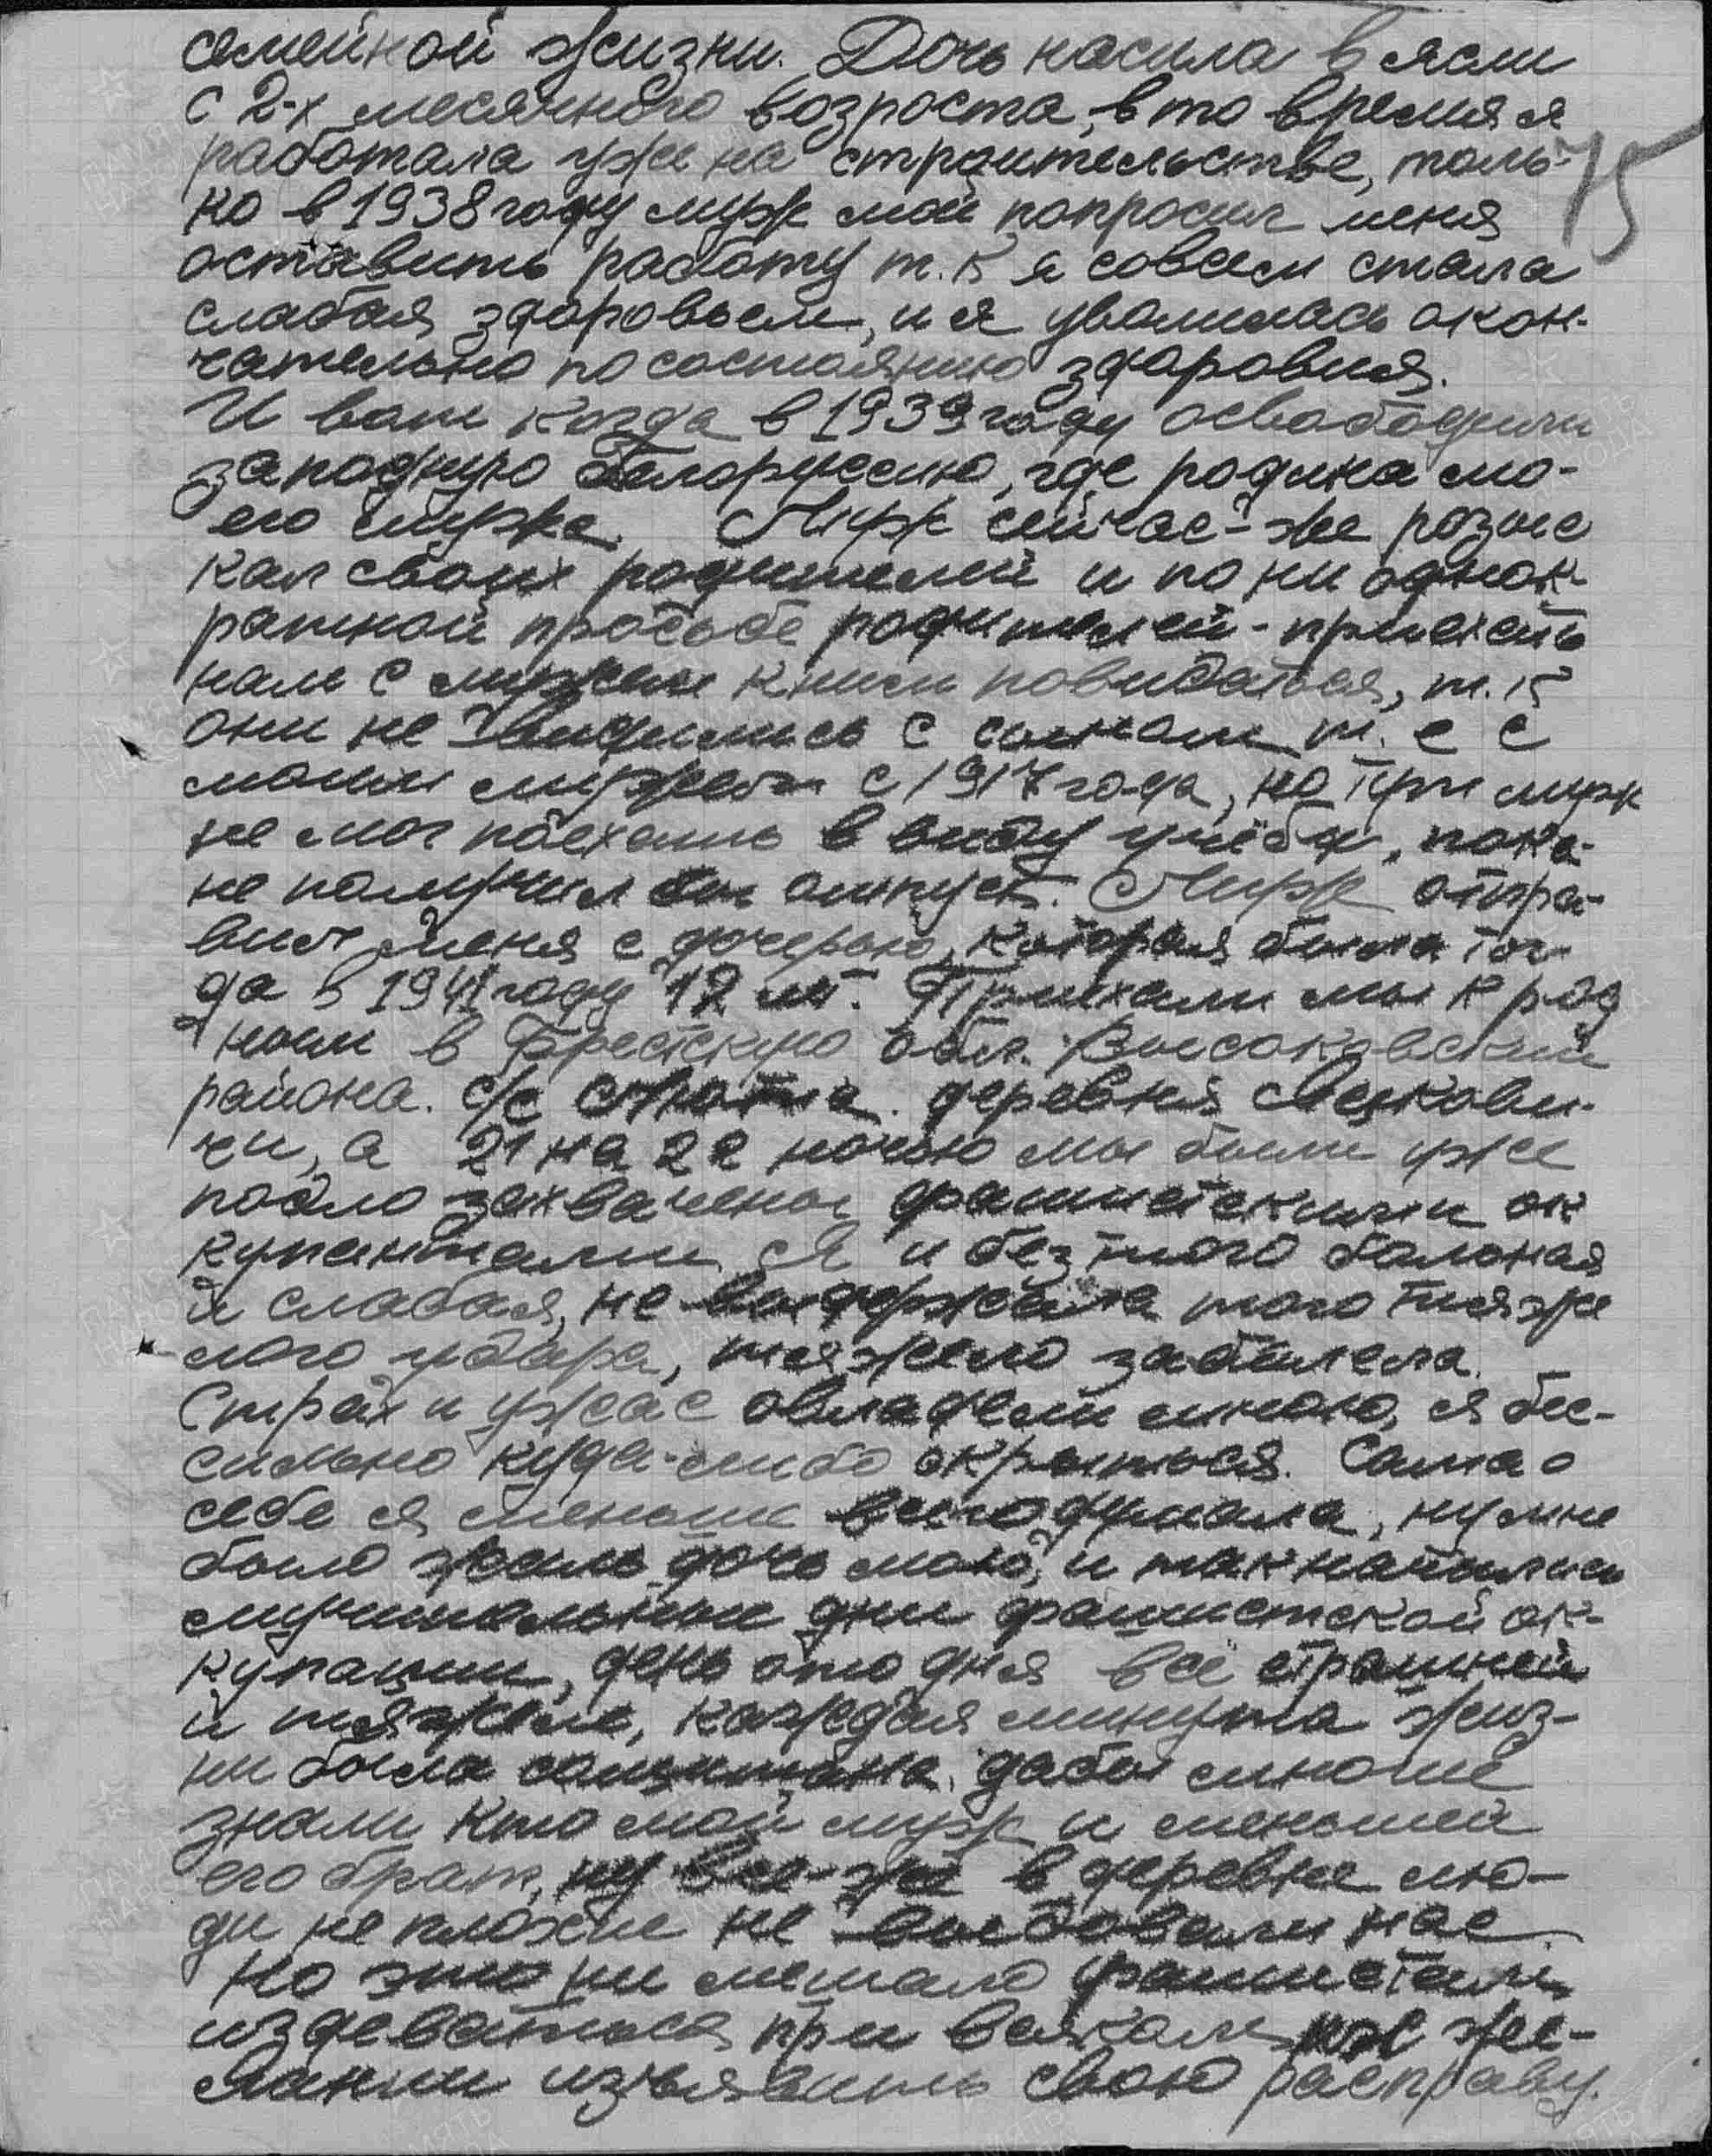 семейной жизни. Дочь насила в ясли
с 2-х месячного возроста, в то время я
работала уже на строительстве, толь-
75
ко в 1938 году муж мой попросил меня
оставить работу т.к я совсем стала
слабая здоровьем, и я уволилась окон-
чательно по состоянию здоровия.
И вот когда в 1939 году освободили
западную Белоруссию, где родина мо-
его мужа. Муж сейчас-же розыс
кал своих родителей и по ни однок-
ратной просьбе родителей - приехать
нам с мужем к ним повидаться, т.к
они не видились с сыном т. е с
моим мужем с 1917 года, но муж
не мог поехать в виду учёбы, пока-
не получил он отпуск. Муж отпра-
вил меня с дочерью, которая была тог-
да в 1941 году 12 лет. Приехали мы к род
ным в Брестскую обл. Высоковский
района. с/с деревня
чи, а 21 на 22 ночью мы были уже
подло захвачены фашистскими ок
купантами. Я и без того больная
и слабая, не выдержала того тяже
лого удара, тяжело заболела.
Страх и ужас овладели мною, я бес-
сильно куда-либо скрыться. Сама о
себе я меньше всего думала, ну мне
было жаль дочь мою, и так начались
мучительные дни фашистской ок-
купации, день ото дня всё страшней
и тяжеле, каждая минута жиз-
ни была сощитана, дабы
знали кто мой муж и меньшей
его брат, ну все-же в деревне лю-
ди не плохие не выдовали нас.
Но это ни мешало фашистам
издеваться при всяком их же-
лании изъявить свою расправу.